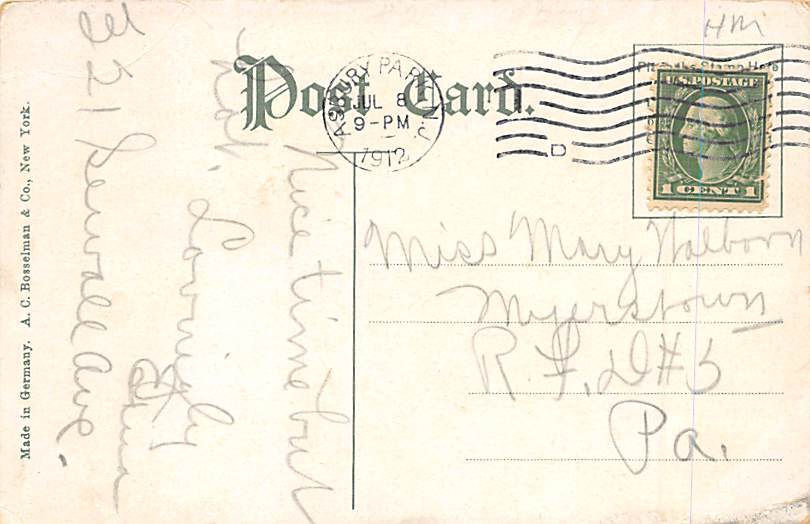 HM
Post Card.
Place the Stamp Here
ASBURY PARK, N.J.
JUL 8
9-PM
1912
D
U.S. POSTAGE
1 CENT 1
Nice time but
hot.
Lovingly
321 Sewall Ave.
Miss Mary Walborn
Myerstown
R.F.D #5
Pa.
Made in Germany. A. C. Bosselman & Co., New York.